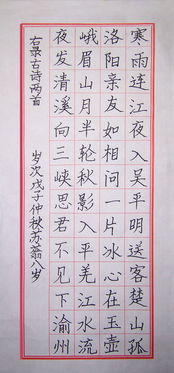 寒雨连江夜入吴平明送客楚山孤
洛阳亲友如相问一片冰心在玉壶
峨眉山月半轮秋影入平羌江水流
夜发清溪向三峡思君不见下渝州
右录古诗两首
岁次戊子仲秋苏蕊八岁